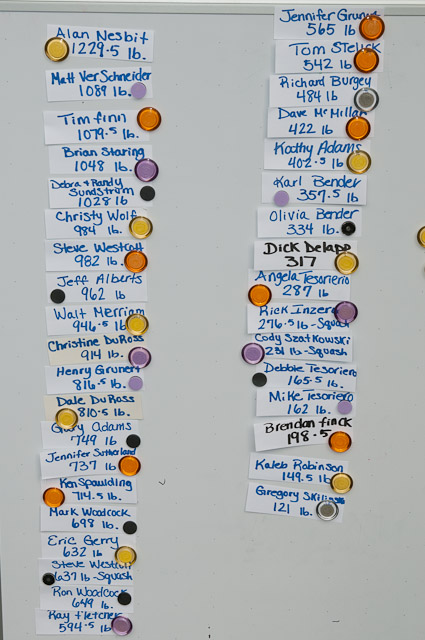 Alan Nesbit
1229.5 lb
Matt VerSchneider
1089 lb.
Tim finn
1079.5 lb.
Brian Staring
1048 lb.
Debra & Randy
Sundstrom
1028 lb
Christy Wolf
984 lb.
Steve Westcott
982 lb.
Jeff Alberts
962 lb
Walt Merriam
946.5 lb
Christine DuRoss
914 lb.
Henry Grunert
816.5 lb.
Dale DuRoss
810.5 lb.
Gary Adams
749 lb
Jennifer Sutherland
737 lb
Ken Spaulding
714.5 lb.
Mark Woodcock
698 lb.
Eric Gerry
632 lb
Steve Westcott
637 lb-Squash
Ron Woodcock
649 lb.
Ray Fletcher
594.5 lb
Jennifer Grunert
565 lb
Tom Steuck
542 lb
Richard Burgey
484 lb
Dave McMillan
422 lb
Kathy Adams
402.5 lb
Karl Bender
357.5 lb
Olivia Bender
334 lb.
Dick Delapp
317
Angela Tesoriero
287 lb
Rick Inzero
276.5 lb-Squash
Cody Szatkowski
231 lb-Squash
Debbie Tesoriero
165.5 lb
Mike Tesoriero
162 lb.
Brendan finck
198.5
Kaleb Robinson
149.5 lb
Gregory Skilings
121 lb.